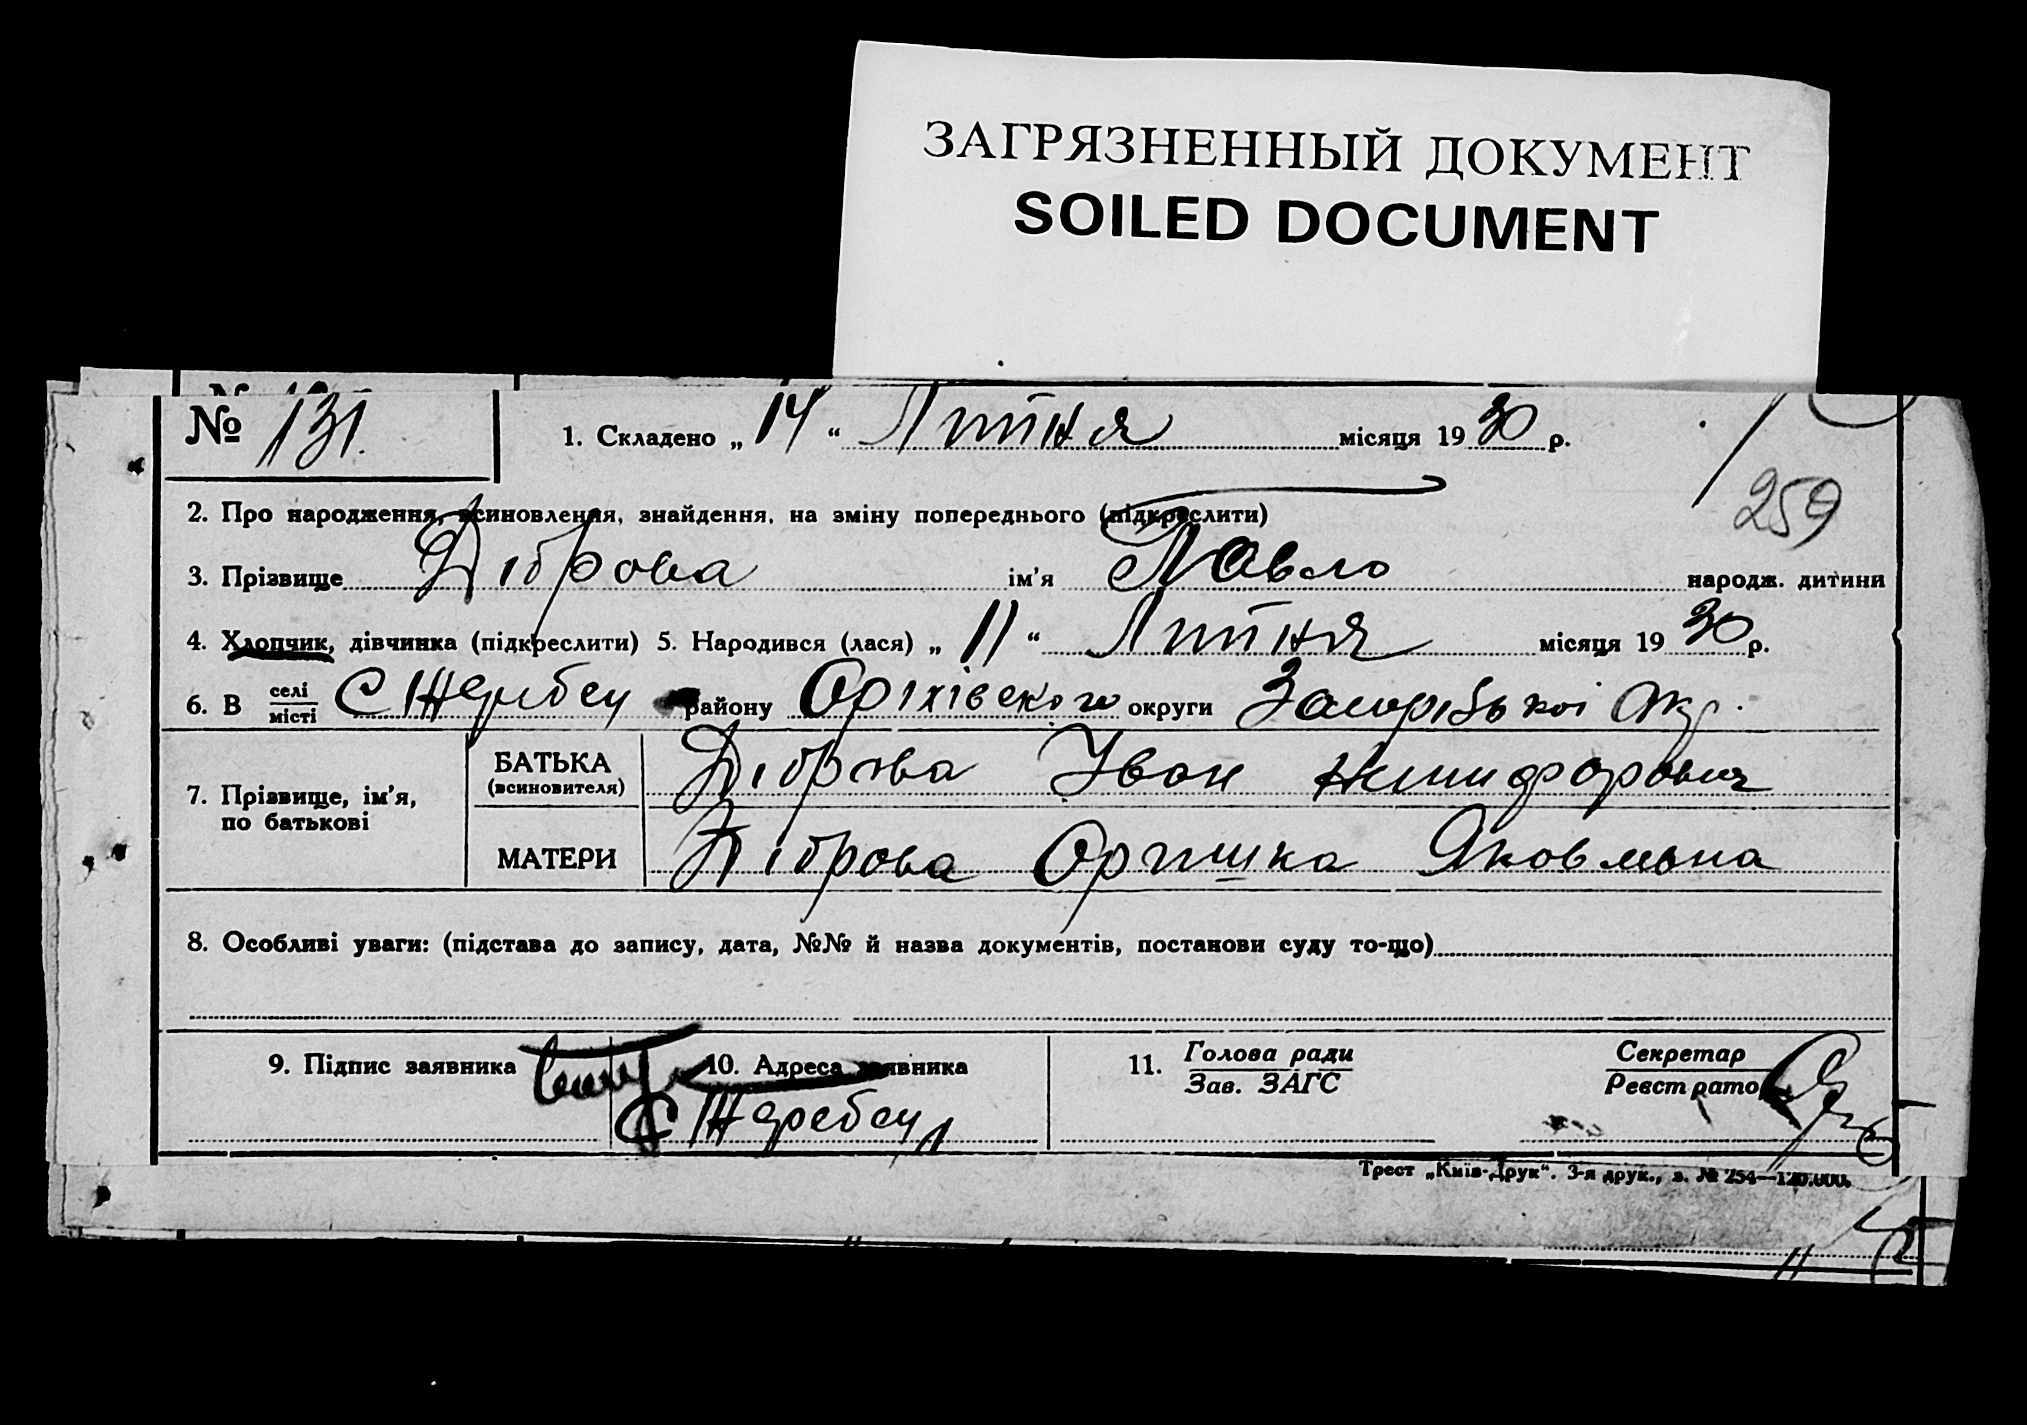 ЗАГРЯЗНЕННЫЙ ДОКУМЕНТ
SOILED DOCUMENT
№ 131. 1. Складено „ 14 “ Липня місяця 19 30 р.
259
2. Про народження, всиновлення, знайдення, на зміну попереднього (підкреслити)
3. Прізвище Діброва ім’я Павло народж. дитини
4. Хлопчик, дівчинка (підкреслити) 5. Народився (лася) „ 11 “ Липня місяця 19 30 р.
6. В селі місті С Жеребец району Оріхівского округи Запорізької Окр.
7. Прізвище, ім’я, по батькові
БАТЬКА (всиновителя) Діброва Іван Никифорович
МАТЕРИ Діброва Оришка Яковльна
8. Особливі уваги: (підстава до запису, дата, №№ й назва документів, постанови суду то-що)
9. Підпис заявника 10. Адреса заявника 11. Голова ради Секретар
Зав. ЗАГС Реєстратор
С Жеребец
Трест „Київ-Друк“. 3-я друк., з. № 254—120.000.